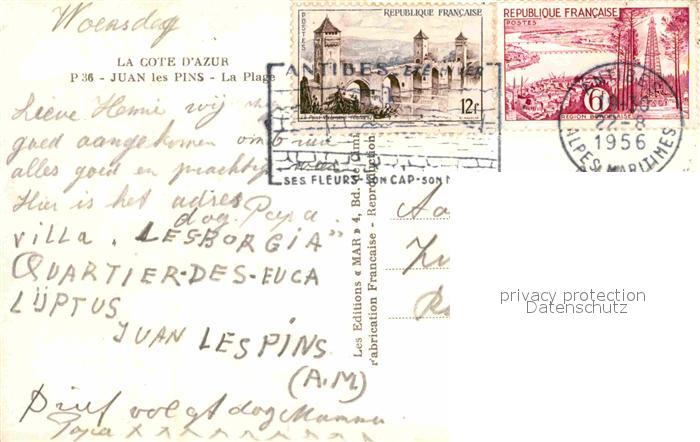 Woensdag
LA COTE D'AZUR
P 36 - JUAN les PINS - La Plage
Lieve Hennie wij
goed aangekomen om
alles goed en prachtig
Hier is het adres
dag. Papa.
villa „LES-BORGIA"
QUARTIER-DES-EUCA
LÜPTUS
JUAN LES PINS
(A.M)
Brief volgt dag Mamma
Papa x x x x x x x x
Les Editions « MAR » 4, Bd. de Cimi
Fabrication Française - Reproduction
POSTES
REPUBLIQUE FRANÇAISE
12F
REPUBLIQUE FRANÇAISE
POSTES
6F
REGION BORDELAISE
ANTIBES
SES FLEURS-SON CAP-SON
ANTIBES
22-8
1956
ALPES MARITIMES
privacy protection
Datenschutz